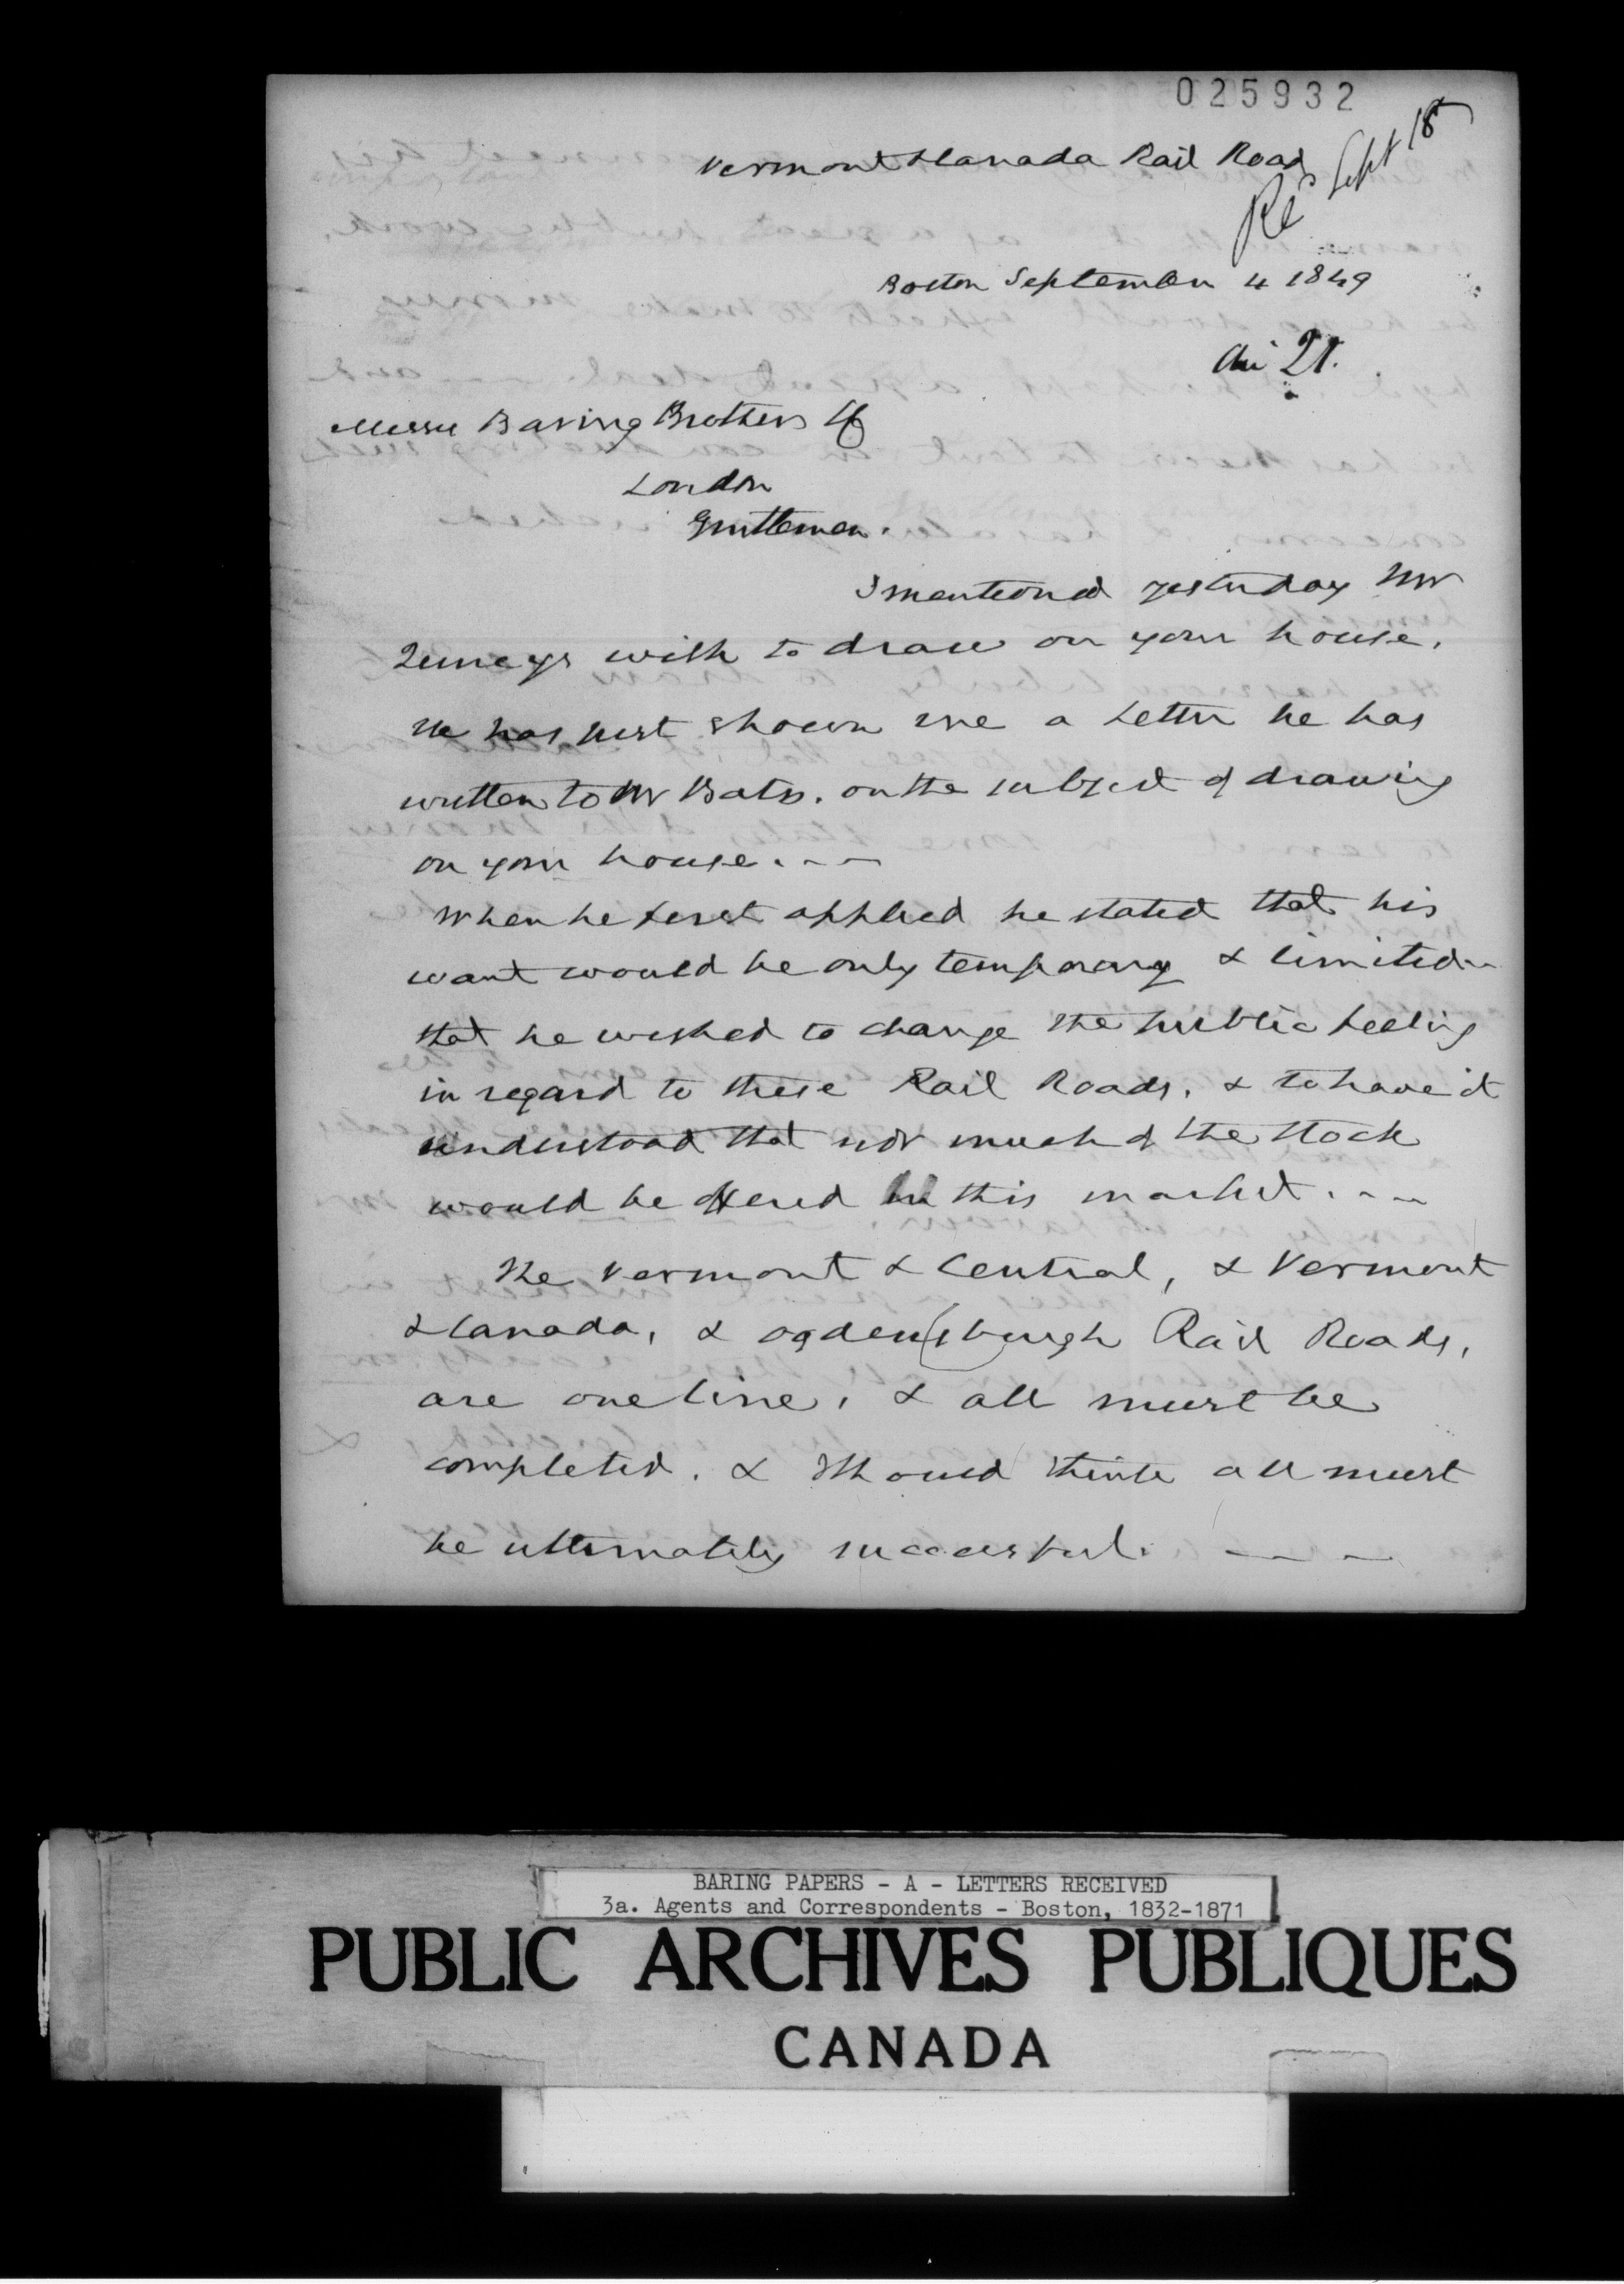 025932
Vermont & Canada Rail Road
Rec Sept 18
Boston September 4 1849
21.
Messrs Baring Brothers & Co
London
Gentlemen.
I mentioned yesterday Mr
Quincys wish to draw on your house.
He has just shown me a Letter he has
written to Mr Bates. on the subject of drawing
on your house. - -
When he first applied he stated that his
want would be only temporary & limited -
that he wished to change the public feeling
in regard to these Rail Roads. & to have it
understood that not much of the stock
would be offered in this market. - -
The Vermont & Central, & Vermont
& Canada, & Ogdensburgh Rail Roads,
are one line, & all must be
completed. & I should think all must
be ultimately successful. - -
BARING PAPERS - A - LETTERS RECEIVED
3a. Agents and Correspondents - Boston, 1832-1871
PUBLIC ARCHIVES PUBLIQUES
CANADA